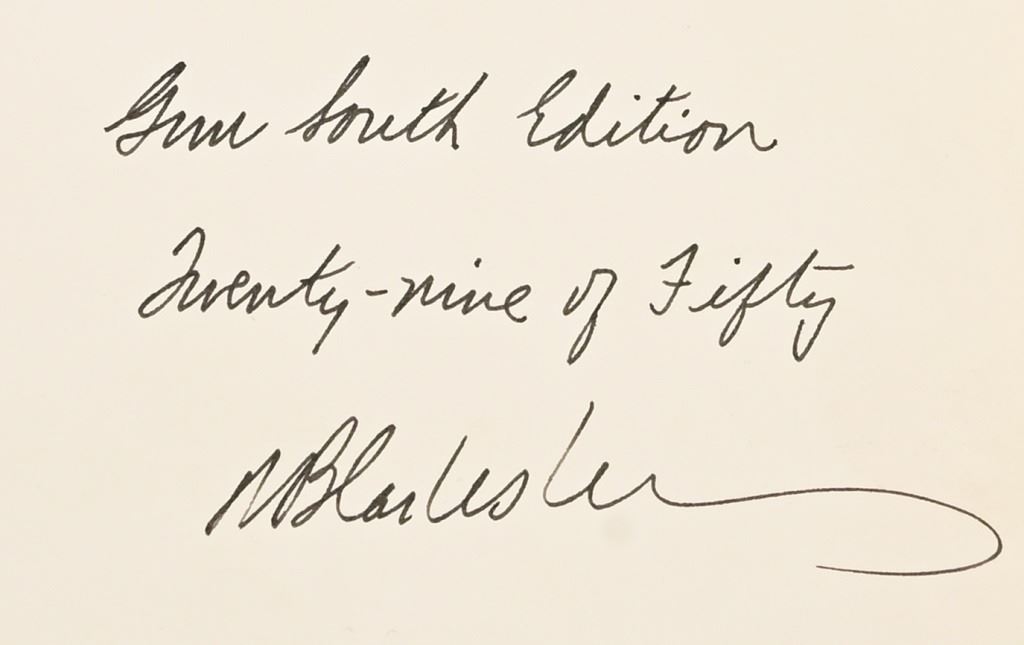 Gum South Edition
Twenty-nine of Fifty